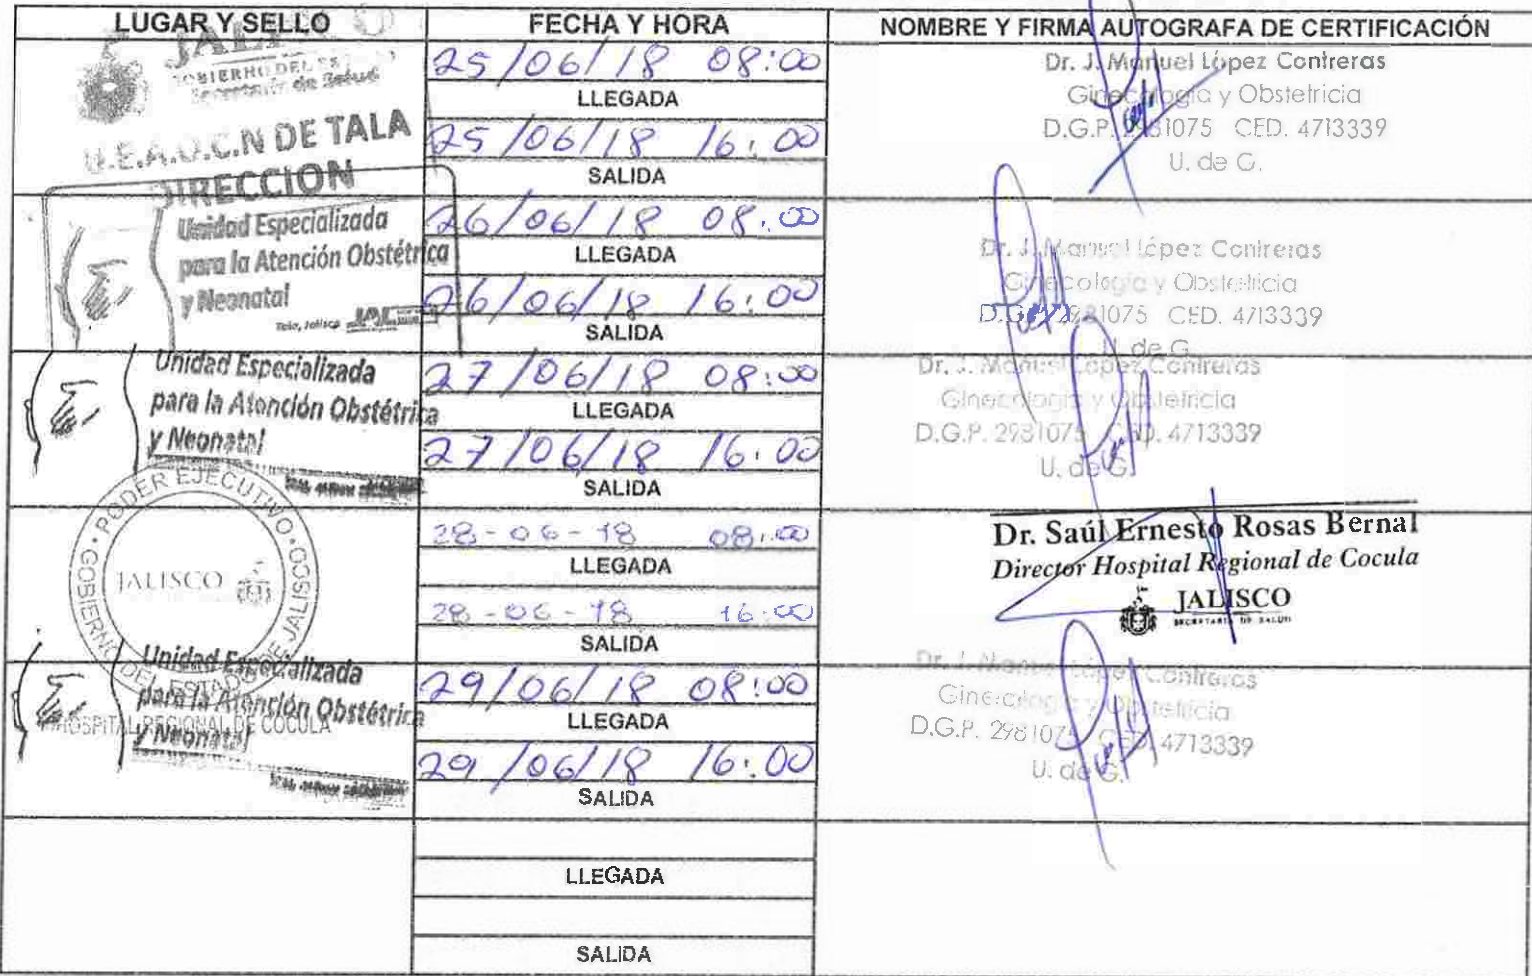 LUGAR Y SELLO
FECHA Y HORA
NOMBRE Y FIRMA AUTOGRAFA DE CERTIFICACIÓN
GOBIERNO DEL
Secretaría de Salud
U.E.A.O.C.N DE TALA
DIRECCION
25/06/18 08:00
LLEGADA
25/06/18 16:00
SALIDA
Dr. J. Manuel López Contreras
Ginecología y Obstetricia
D.G.P. 2981075 CED. 4713339
U. de G.
Unidad Especializada
para la Atención Obstétrica
y Neonatal
Tala, Jalisco
26/06/18 08:00
LLEGADA
26/06/18 16:00
SALIDA
Dr. J. Manuel López Contreras
Ginecología y Obstetricia
D.G.P. 2981075 CED. 4713339
U. de G.
Unidad Especializada
para la Atención Obstétrica
y Neonatal
27/06/18 08:00
LLEGADA
27/06/18 16:00
SALIDA
Dr. J. Manuel López Contreras
Ginecología y Obstetricia
D.G.P. 2981075 CED. 4713339
U. de G.
PODER EJECUTIVO
GOBIERNO DEL ESTADO DE JALISCO
JALISCO
HOSPITAL REGIONAL DE COCULA
28-06-18 08:00
LLEGADA
28-06-18 16:00
SALIDA
Dr. Saúl Ernesto Rosas Bernal
Director Hospital Regional de Cocula
JALISCO
SECRETARÍA DE SALUD
Unidad Especializada
para la Atención Obstétrica
y Neonatal
29/06/18 08:00
LLEGADA
29/06/18 16:00
SALIDA
Dr. J. Manuel López Contreras
Ginecología y Obstetricia
D.G.P. 2981075 CED. 4713339
U. de G.
LLEGADA
SALIDA